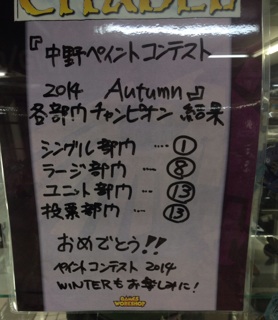 CITADEL
『中野ペイントコンテスト
2014 Autumn』
各部門チャンピオン 結果
シングル部門 … ①
ラージ部門 … ⑧
ユニット部門 … ⑬
投票部門 … ⑬
おめでとう!!
ペイントコンテスト 2014
WINTERもお楽しみに!
GAMES
WORKSHOP